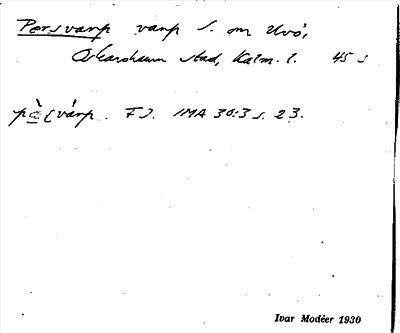 Persvarp varp S. om Uvö,
Oskarshamn stad, Kalm. l. 45 s
varp. F J. IMA 30:3 s. 23.
Ivar Modéer 1930